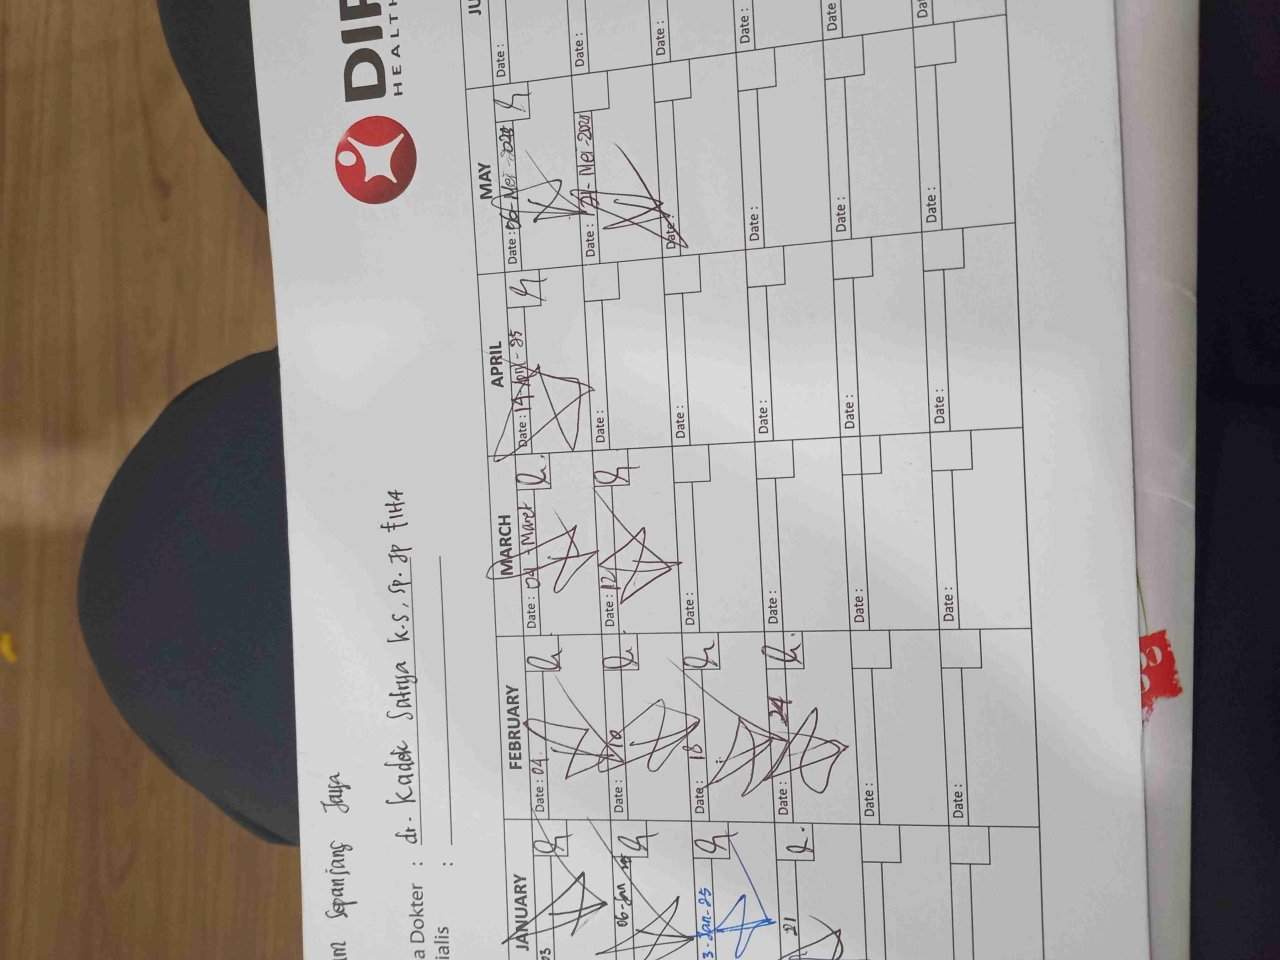 DIP
HEALTH
Sepanjang Jaya
a Dokter : dr. Kadek Satrya K.S, Sp. JP FIHA
ialis :
JANUARY FEBRUARY MARCH APRIL MAY JU
03 Date : 04 Date : 04 - Maret Date : 14 - April - 25 Date : 06 - Mei - 2024 Date :
06-Jan Date : 10 Date : 12 Date : Date : 21 - Mei - 2024 Date :
3-Jan-25 Date : 18 Date : Date : Date : Date :
21 Date : 24 Date : Date : Date : Date :
Date : Date : Date : Date : Date
Date : Date : Date : Date : Da